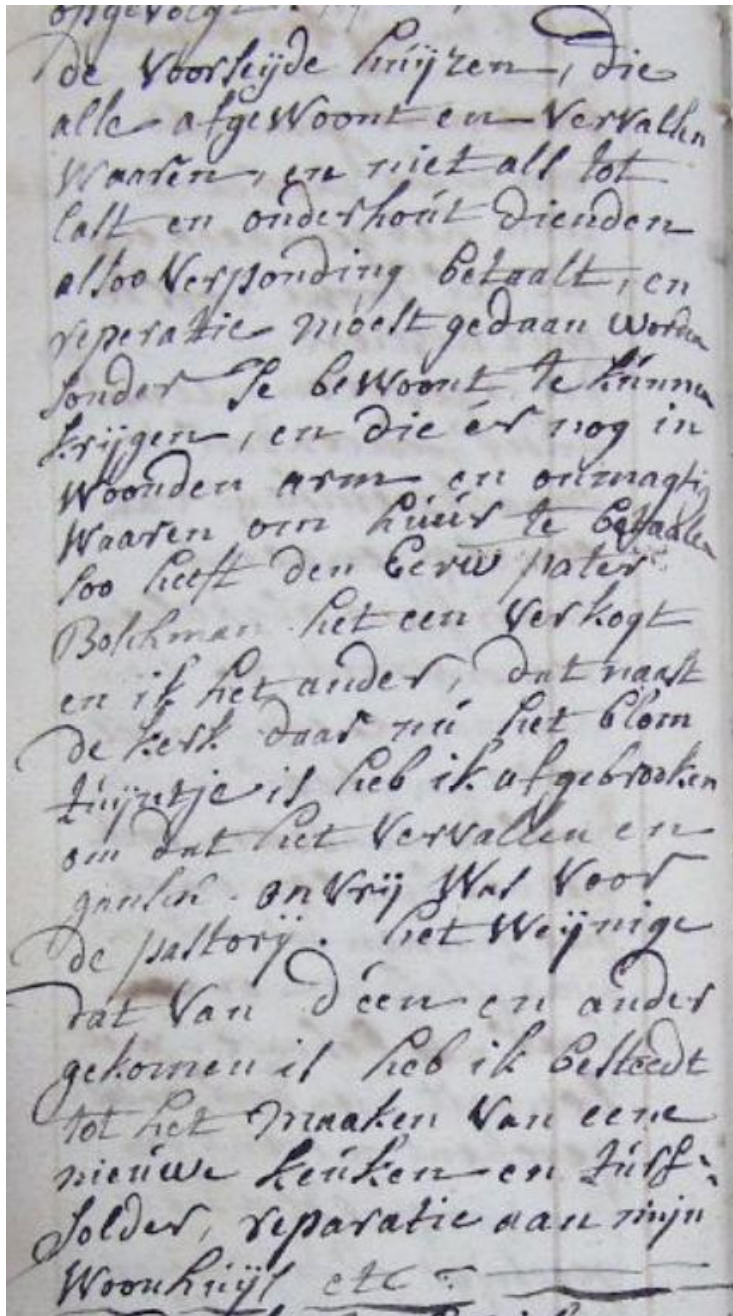 opgevolgt
de voorseijde huijzen, die
alle afgewoont en vervallen
waaren, en niet als tot
last en onderhout dienden
alsoo verponding betaalt, en
reperatie moest gedaan worden
sonder se bewoont te kunnen
krijgen, en die er nog in
woonden arm en onmagtig
waaren om huur te betaalen
soo heeft den eerw pater
Bolckman het een verkogt
en ik het ander, dat naast
de kerk daar nu het blom
tuijntje is heb ik afgebrooken
om dat het vervallen en
gansch onvrij was voor
de pastorij. het weijnige
dat van d'een en ander
gekomen is heb ik besteedt
tot het maaken van eene
nieuwe keuken en turf-
solder, reparatie aan mijn
woonhuijs etc.